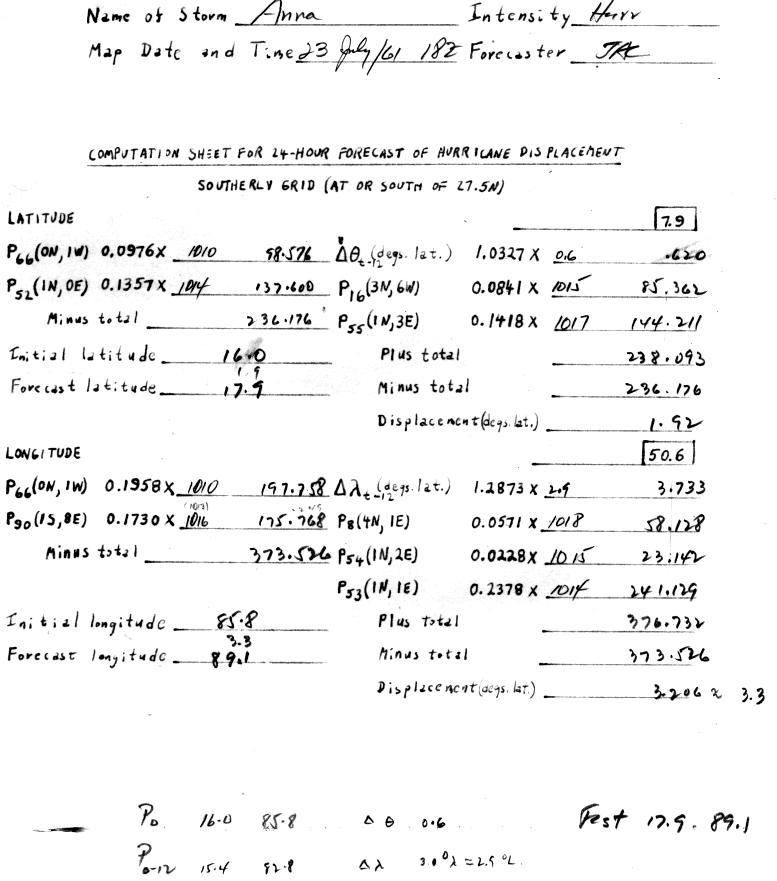 Name of Storm Anna Intensity Hurr
Map Date and Time 23 July/61 18Z Forecaster
COMPUTATION SHEET FOR 24-HOUR FORECAST OF HURRICANE DISPLACEMENT
SOUTHERLY GRID (AT OR SOUTH OF 27.5N)
LATITUDE 7.9
P66(0N, 1W) 0.0976 X 1010 98.576 Δθt-12 (degs. lat.) 1.0327 X 0.6 .620
P52(1N, 0E) 0.1357 X 1014 137.600 P16(3N, 6W) 0.0841 X 1015 85.362
Minus total 236.176 P55(1N, 3E) 0.1418 X 1017 144.211
Initial latitude 16.0 Plus total 238.093
1.9
Forecast latitude 17.9 Minus total 236.176
Displacement (degs. lat.) 1.92
LONGITUDE 50.6
P66(0N, 1W) 0.1958 X 1010 197.758 Δλt-12 (degs. lat.) 1.2873 X 2.9 3.733
P90(1S, 8E) 0.1730 X 1016 175.768 P8(4N, 1E) 0.0571 X 1018 58.128
Minus total 373.526 P54(1N, 2E) 0.0228 X 1015 23.142
P53(1N, 1E) 0.2378 X 1014 241.129
Initial longitude 85.8 Plus total 376.732
3.3
Forecast longitude 89.1 Minus total 373.526
Displacement (degs. lat.) 3.206 ≈ 3.3
P0 16.0 85.8 Δθ 0.6 Fcst 17.9 . 89.1
P0-12 15.4 82.8 Δλ 3.0°λ = 2.9 °L.